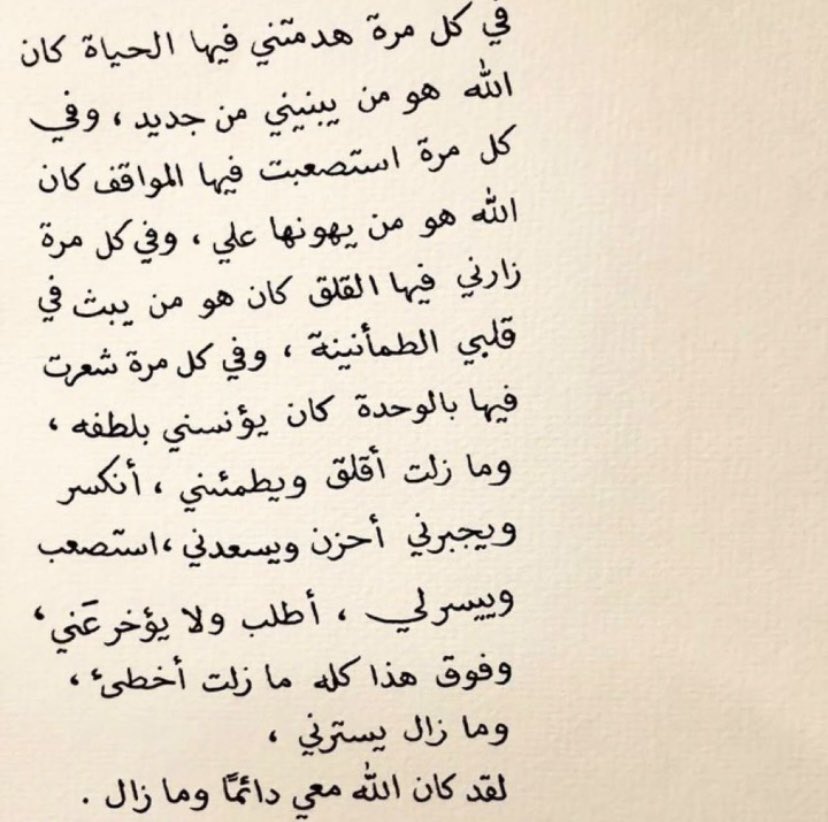 في كل مرة هدمتني فيها الحياة كان
الله هو من يبنيني من جديد ، وفي
كل مرة استصعبت فيها المواقف كان
الله هو من يهونها علي ، وفي كل مرة
زارني فيها القلق كان هو من يبث في
قلبي الطمأنينة ، وفي كل مرة شعرت
فيها بالوحدة كان يؤنسني بلطفه ،
وما زلت أقلق ويطمئنني ، أنكسر
ويجبرني أحزن ويسعدني ،استصعب
وييسر لي ، أطلب ولا يؤخر عَني ،
وفوق هذا كله ما زلت أخطئ ،
وما زال يسترني ،
لقد كان الله معي دائمًا وما زال .